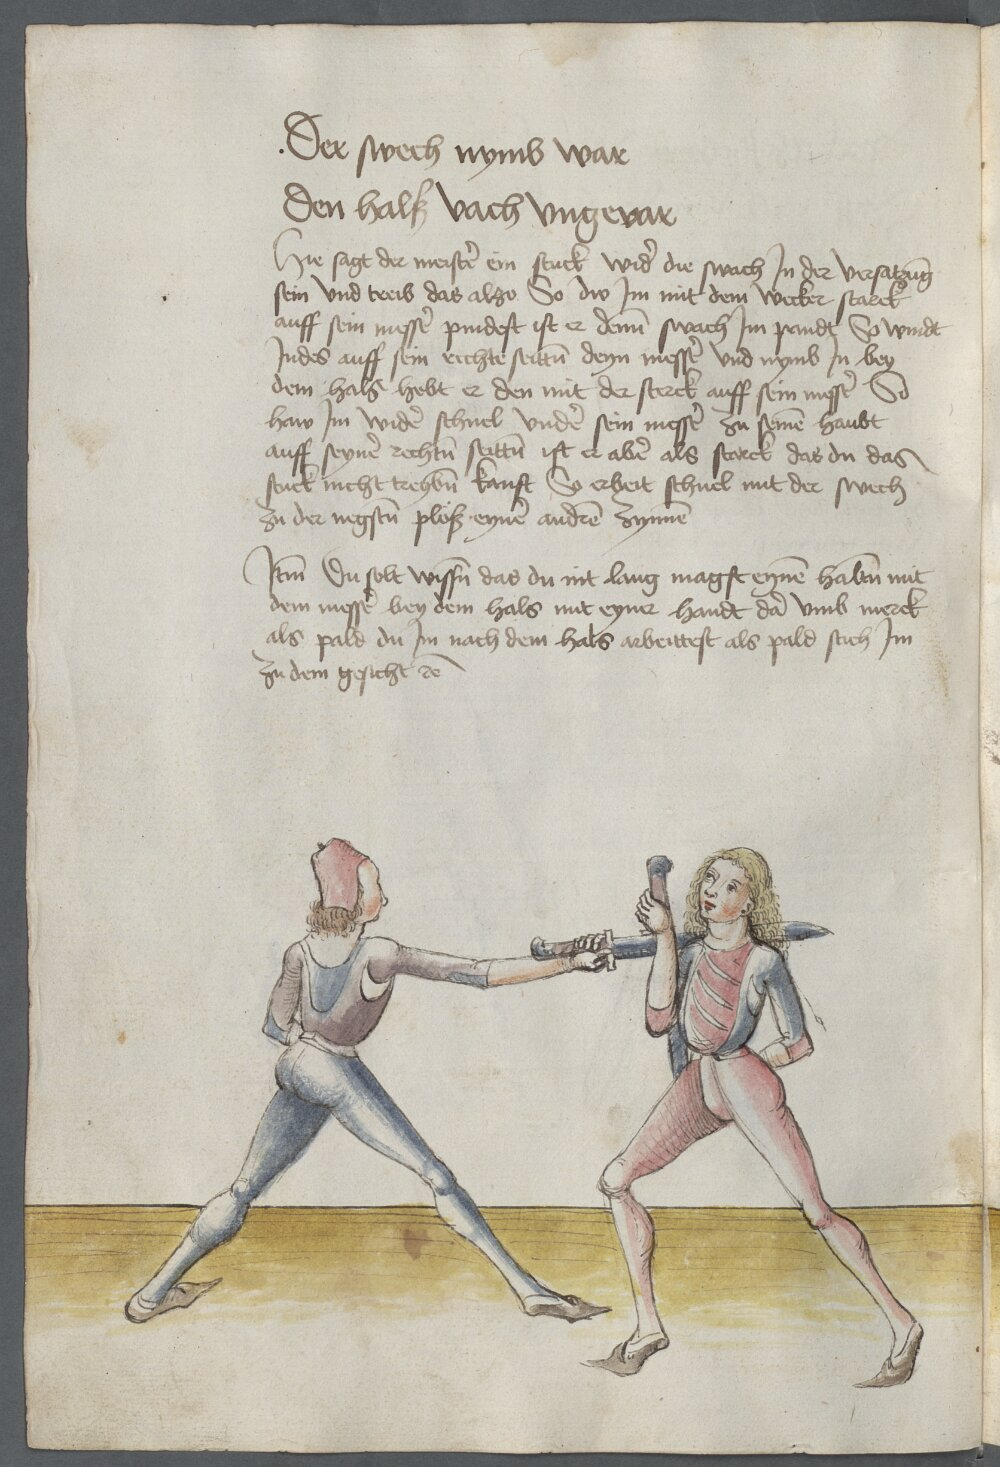 Der swech nymb war
den halß vach vngevar
Hie sagt der meist̄ ein stuck wid̄ die swach Jn der versatzūg
sein vnd treib das alzo So dw Jm mit dem wecker starck
auff sein mess̄ pindest ist er den̄ swach Jm pandt So windt
Jndes auff sein rechte seittn̄ deyn mess̄ vnd nymb Jn bey
dem hals hebt er den mit der sterck auff sein mess̄ So
haw Jm wid̄ schnel vnd̄ sein mess̄ zu seinē haubt
auff seynē rechtn̄ seittn̄ ist er ab̄ als starck das du das
stuck nicht treybn̄ kanst So erbeit schnel mit der swech
zu der negstn̄ plöß eynē andrē zynnē
Jtm̄ Du solt wissn̄ das du nit lang magst eynē habn̄ mit
dem mess̄ bey dem hals mit eyner handt dā vmb merck
als pald du Jm nach dem hals arbeittest als pald stich Jm
zu dem gesicht rē